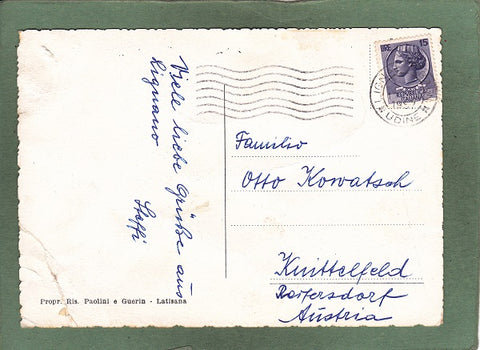 Viele liebe Grüße aus
Lignano
Steffi
LIRE 15
UDINE
Familie
Otto Kowatsch
Knittelfeld
Austria
Propr. Ris. Paolini e Guerin - Latisana